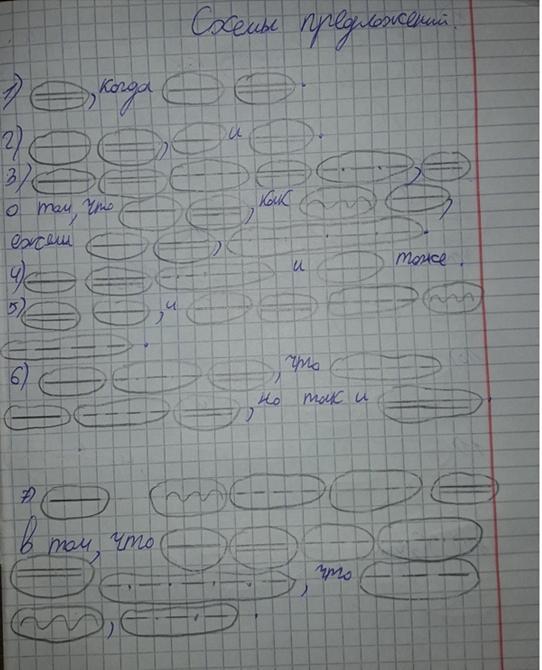 Схемы предложений.
1) , когда .
2) , и .
3) ,
о том, что , как ,
ежели , .
4) и тоже .
5) , и
.
6) , что
, но так и .
7)
в том, что
, что
, .